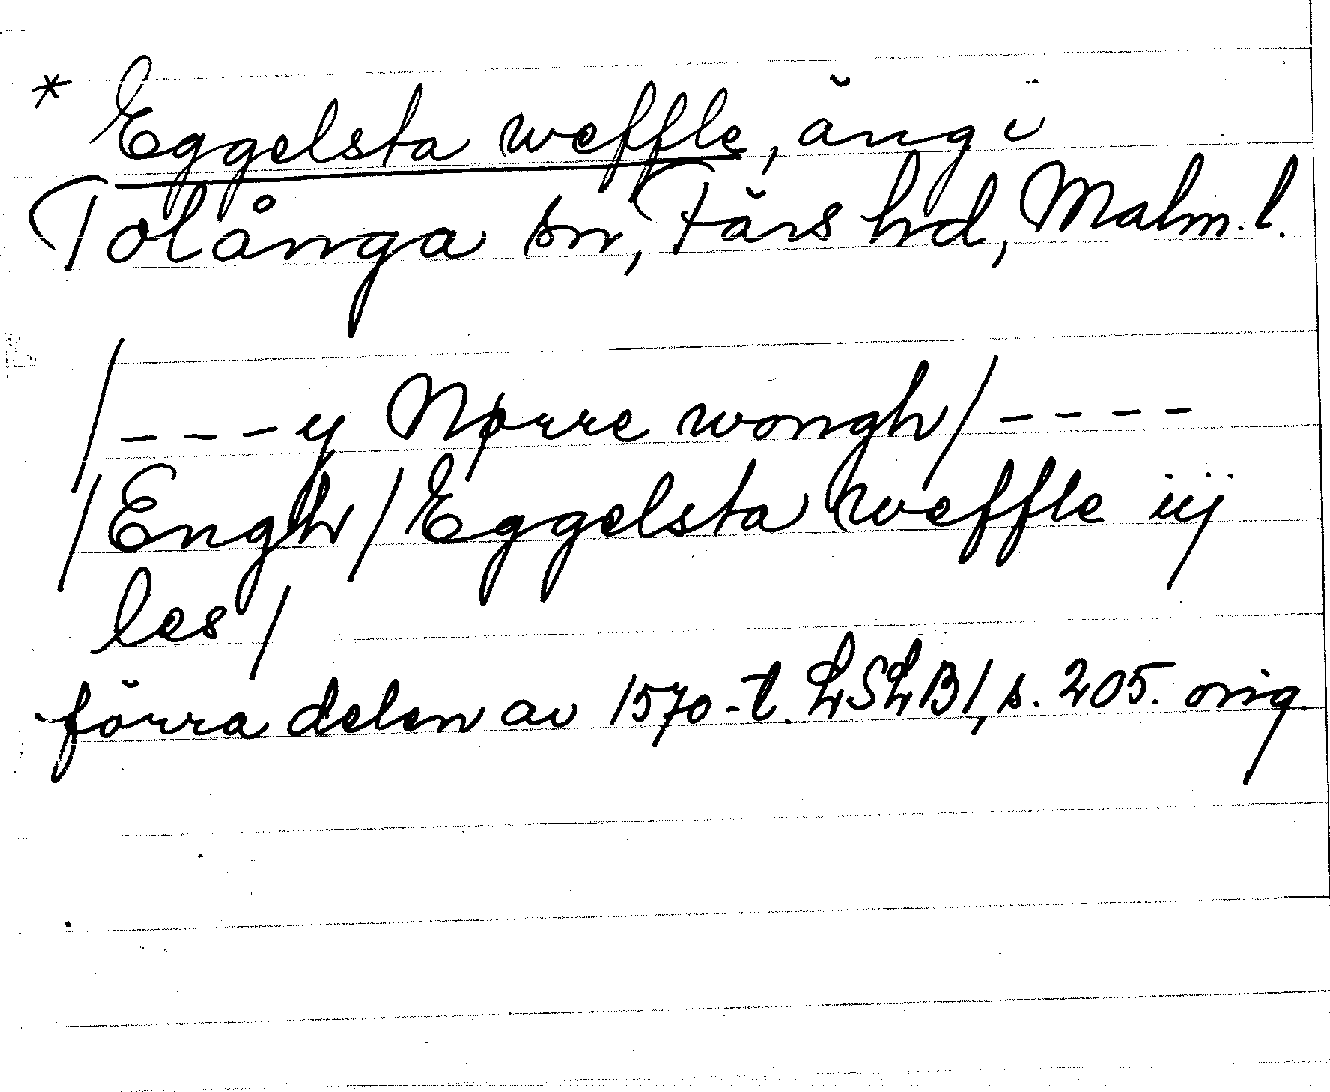 * Eggelsta weffle, äng i
Tolånga sn, Färs hd, Malm. l.
/----y Nørre wongh/----
/Engh/Eggelsta weffle iij
les/
förra delen av 1570-t. LSLB1, s. 205. orig